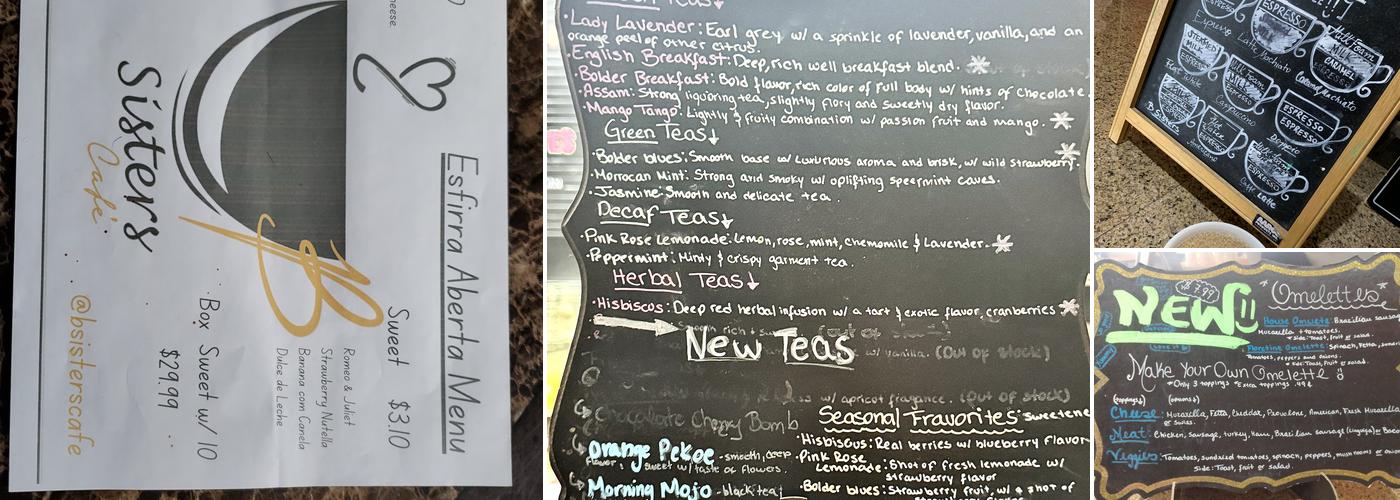 Esfirra Aberta Menu
Sweet $3.10
Romeo & Juliet
Strawberry Nutella
Banana com Canela
Dulce de Leche
Box Sweet w/ 10
$29.99
B
Sisters
Café
@bsisterscafe
Teas
•Lady Lavender: Earl grey w/ a sprinkle of lavender, vanilla, and an
orange peel of other citrus.
•English Breakfast: Deep, rich well breakfast blend.
•Bolder Breakfast: Bold flavor, rich color of full body w/ hints of chocolate.
•Assam: Strong liquoring tea, slightly flory and sweetly dry flavor.
•Mango Tango: Lightly & fruity combination w/ passion fruit and mango.
Green Teas
•Bolder blues: Smooth base w/ Luxurious aroma and brisk, w/ wild strawberry.
•Morrocan Mint: Strong and smoky w/ oplifting speermint caves.
•Jasmine: Smooth and delicate tea.
Decaf Teas
•Pink Rose Lemonade: Lemon, rose, mint, chemomile & Lavender.
•Peppermint: Minty & crispy garment tea.
Herbal Teas
•Hisbiscos: Deep red herbal infusion w/ a tart & exotic flavor, cranberries
New Teas
w/ vanilla. (Out of stock)
w/ apricot fragance. (Out of stock)
Chocolate Cherry Bomb
Orange Pekoe - smooth, deep
flavor, sweet w/ taste of flowers.
Morning Mojo - black tea
Seasonal Fravorites: sweetene
•Hisbiscus: Real berries w/ blueberry flavor
•Pink Rose
Lemonade: Shot of fresh lemonade w/
strawberry flavor
•Bolder blues: Strawberry fruit, w/ a shot of
ESPRESSO
Espresso
Latte Machiato
Milk Foam
CARAMEL
ESPRESSO
Caramel Machiato
STEAMED
MILK
ESPRESSO
Flat White
Cappuccino
ESPRESSO
ESPRESSO
Doppio
Hot
Water
ESPRESSO
Americano
ESPRESSO
Caffe Latte
B. Sisters
$7.99
NEW
Omelettes
House Omelete: Brazilian sausage
Muzarella + tomatoes.
*Side: Toast, fruit or salad.
Florentine Omelette: Spinach, Fetta,
Tomatoes, peppers and onions.
*Side: Toast, Fruit or salad.
Make Your Own Omelette
*Only 3 toppings *Extra toppings .99¢
(toppings)
Cheese: Muzarella, Fetta, Cheddar, Provelone, American, Fresh Muzarella
or swiss.
Meat: Chicken, Sausage, turkey, Ham, Brazilian sausage (Linguiça) or Baco
Veggies: Tomatoes, sundried tomatoes, spinach, peppers, mushrooms or onion
Side: Toast, fruit or salad.